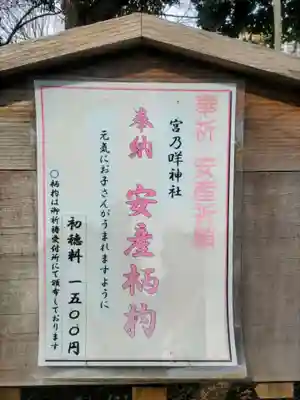 奉祈 安産祈願
宮乃咩神社
奉納 安産柄杓
元気にお子さんがうまれますように
初穂料 一五〇〇円
〇柄杓は御祈祷受付所にて頒布しております